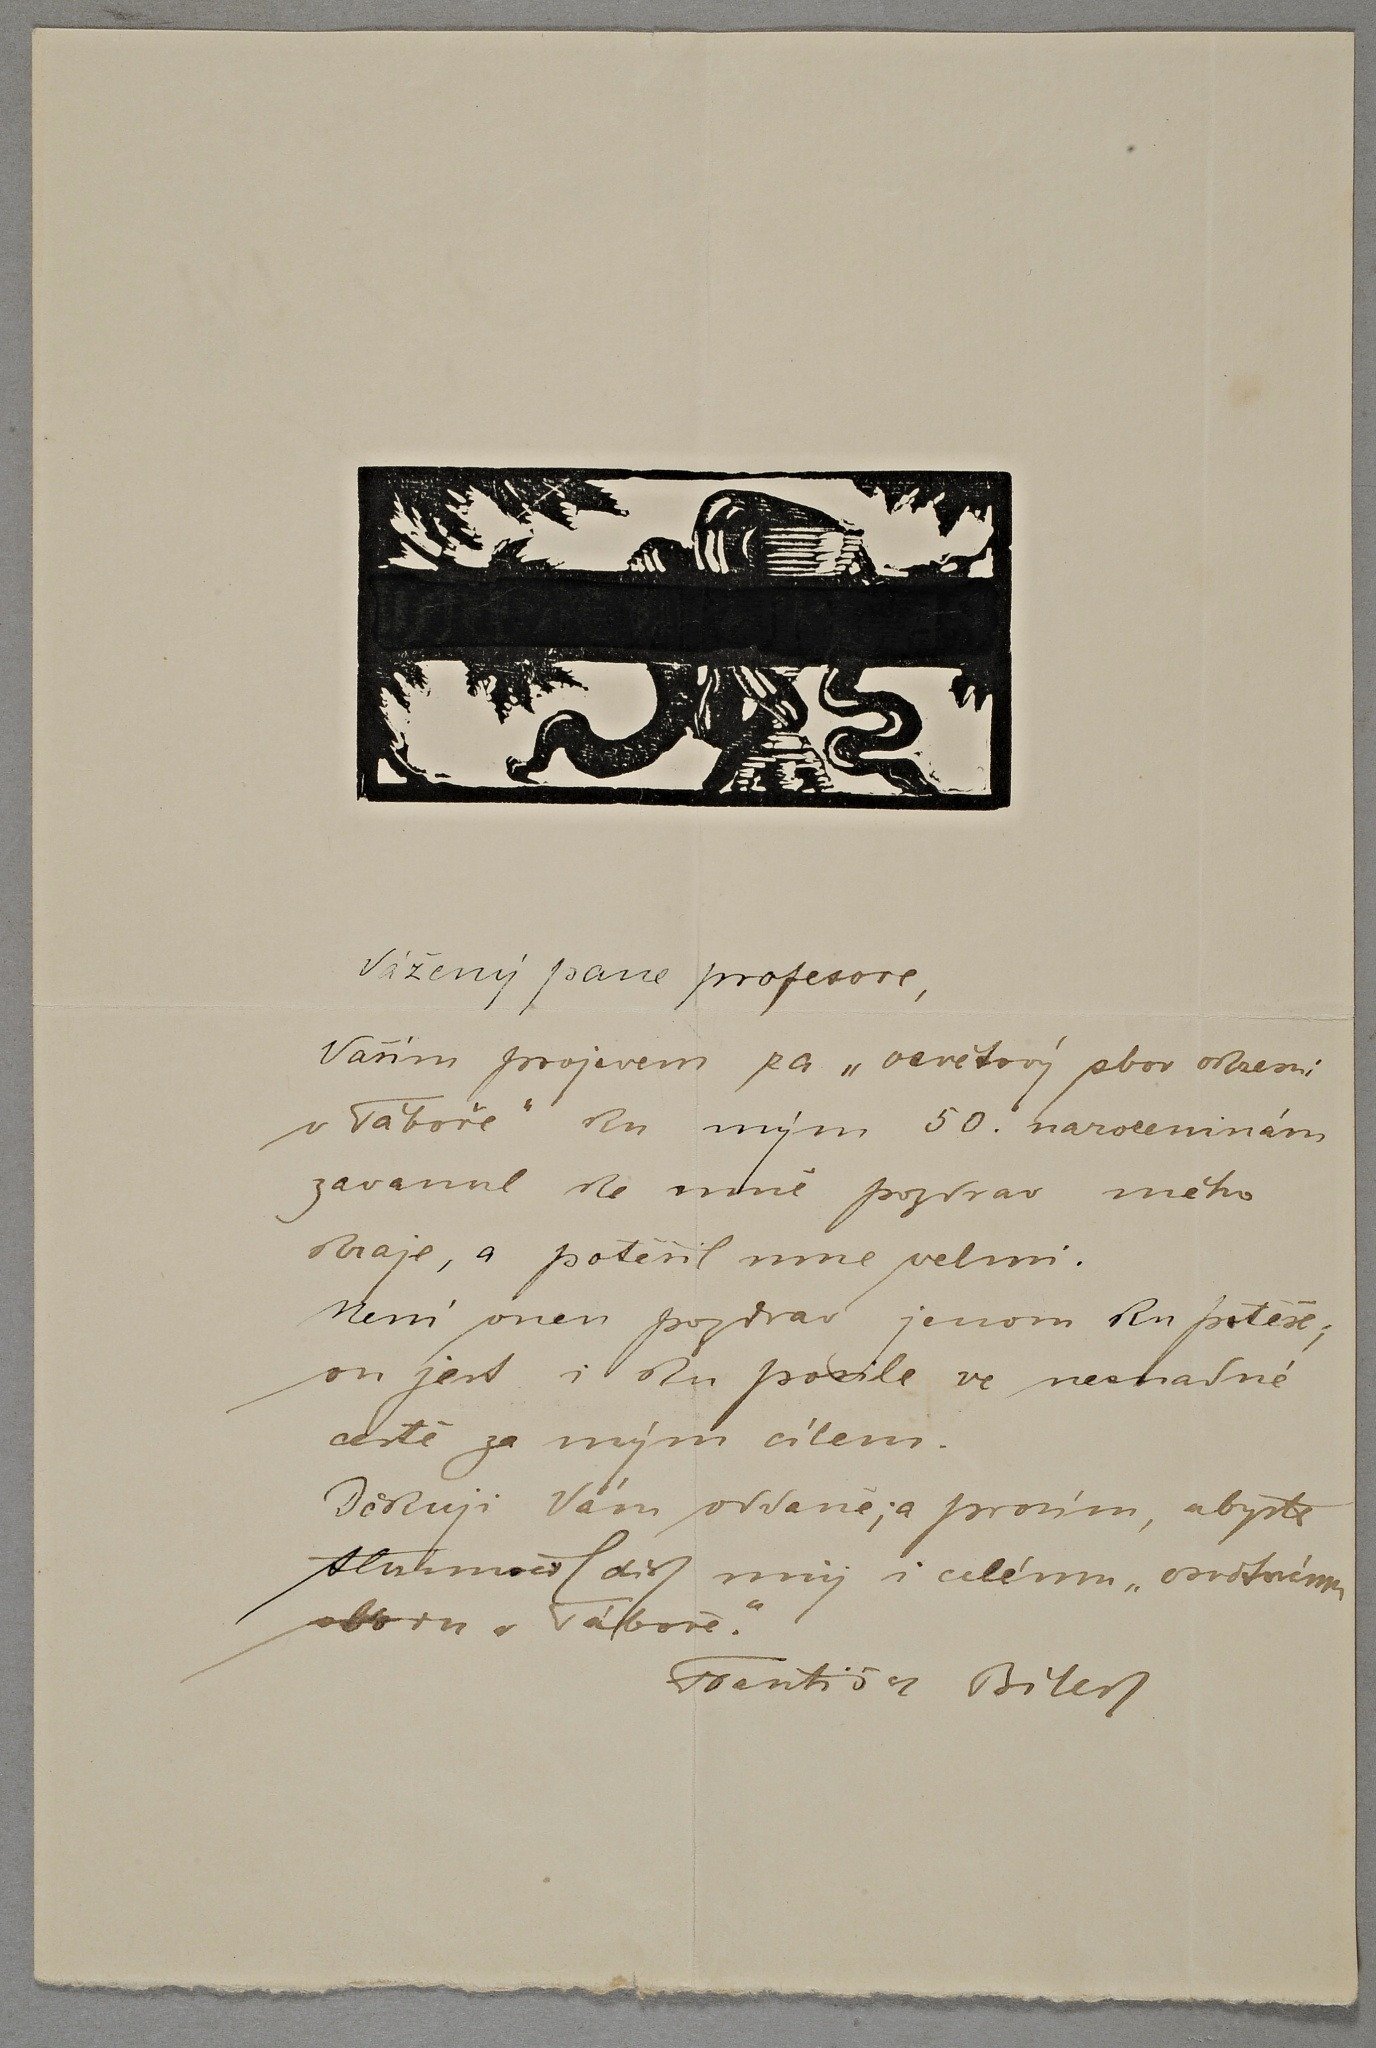 Vážený pane profesore,
Vaším projevem za „osvětový sbor okresní
v Táboře“ ku mým 50. narozeninám
zavanul ke mně pozdrav mého
kraje, a potěšil mne velmi.
Není onen pozdrav jenom ku potěše;
on jest i ku posile ve nesnadné
cestě za mým cílem.
Děkuji Vám oddaně; a prosím, abyste
tlumočil dík můj i celému „osvětovému
sboru v Táboře.“
František Bílek